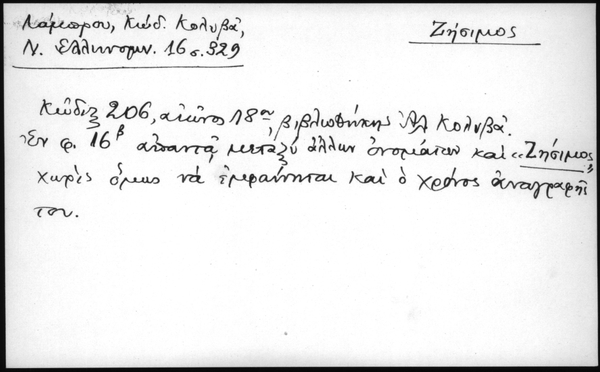 Λάμπρου, Κώδ. Κολυβᾶ,
Ν. Ἑλληνομν. 16 σ. 329
Ζήσιμος
Κώδιξ 206, αἰῶνος 18ου, βιβλιοθήκης Ἀλ Κολυβᾶ.
Ἐν φ. 16β ἀπαντᾷ μεταξὺ ἄλλων ὀνομάτων καὶ «Ζήσιμος»
χωρὶς ὅμως νὰ ἐμφαίνηται καὶ ὁ χρόνος ἀναγραφῆς
του.